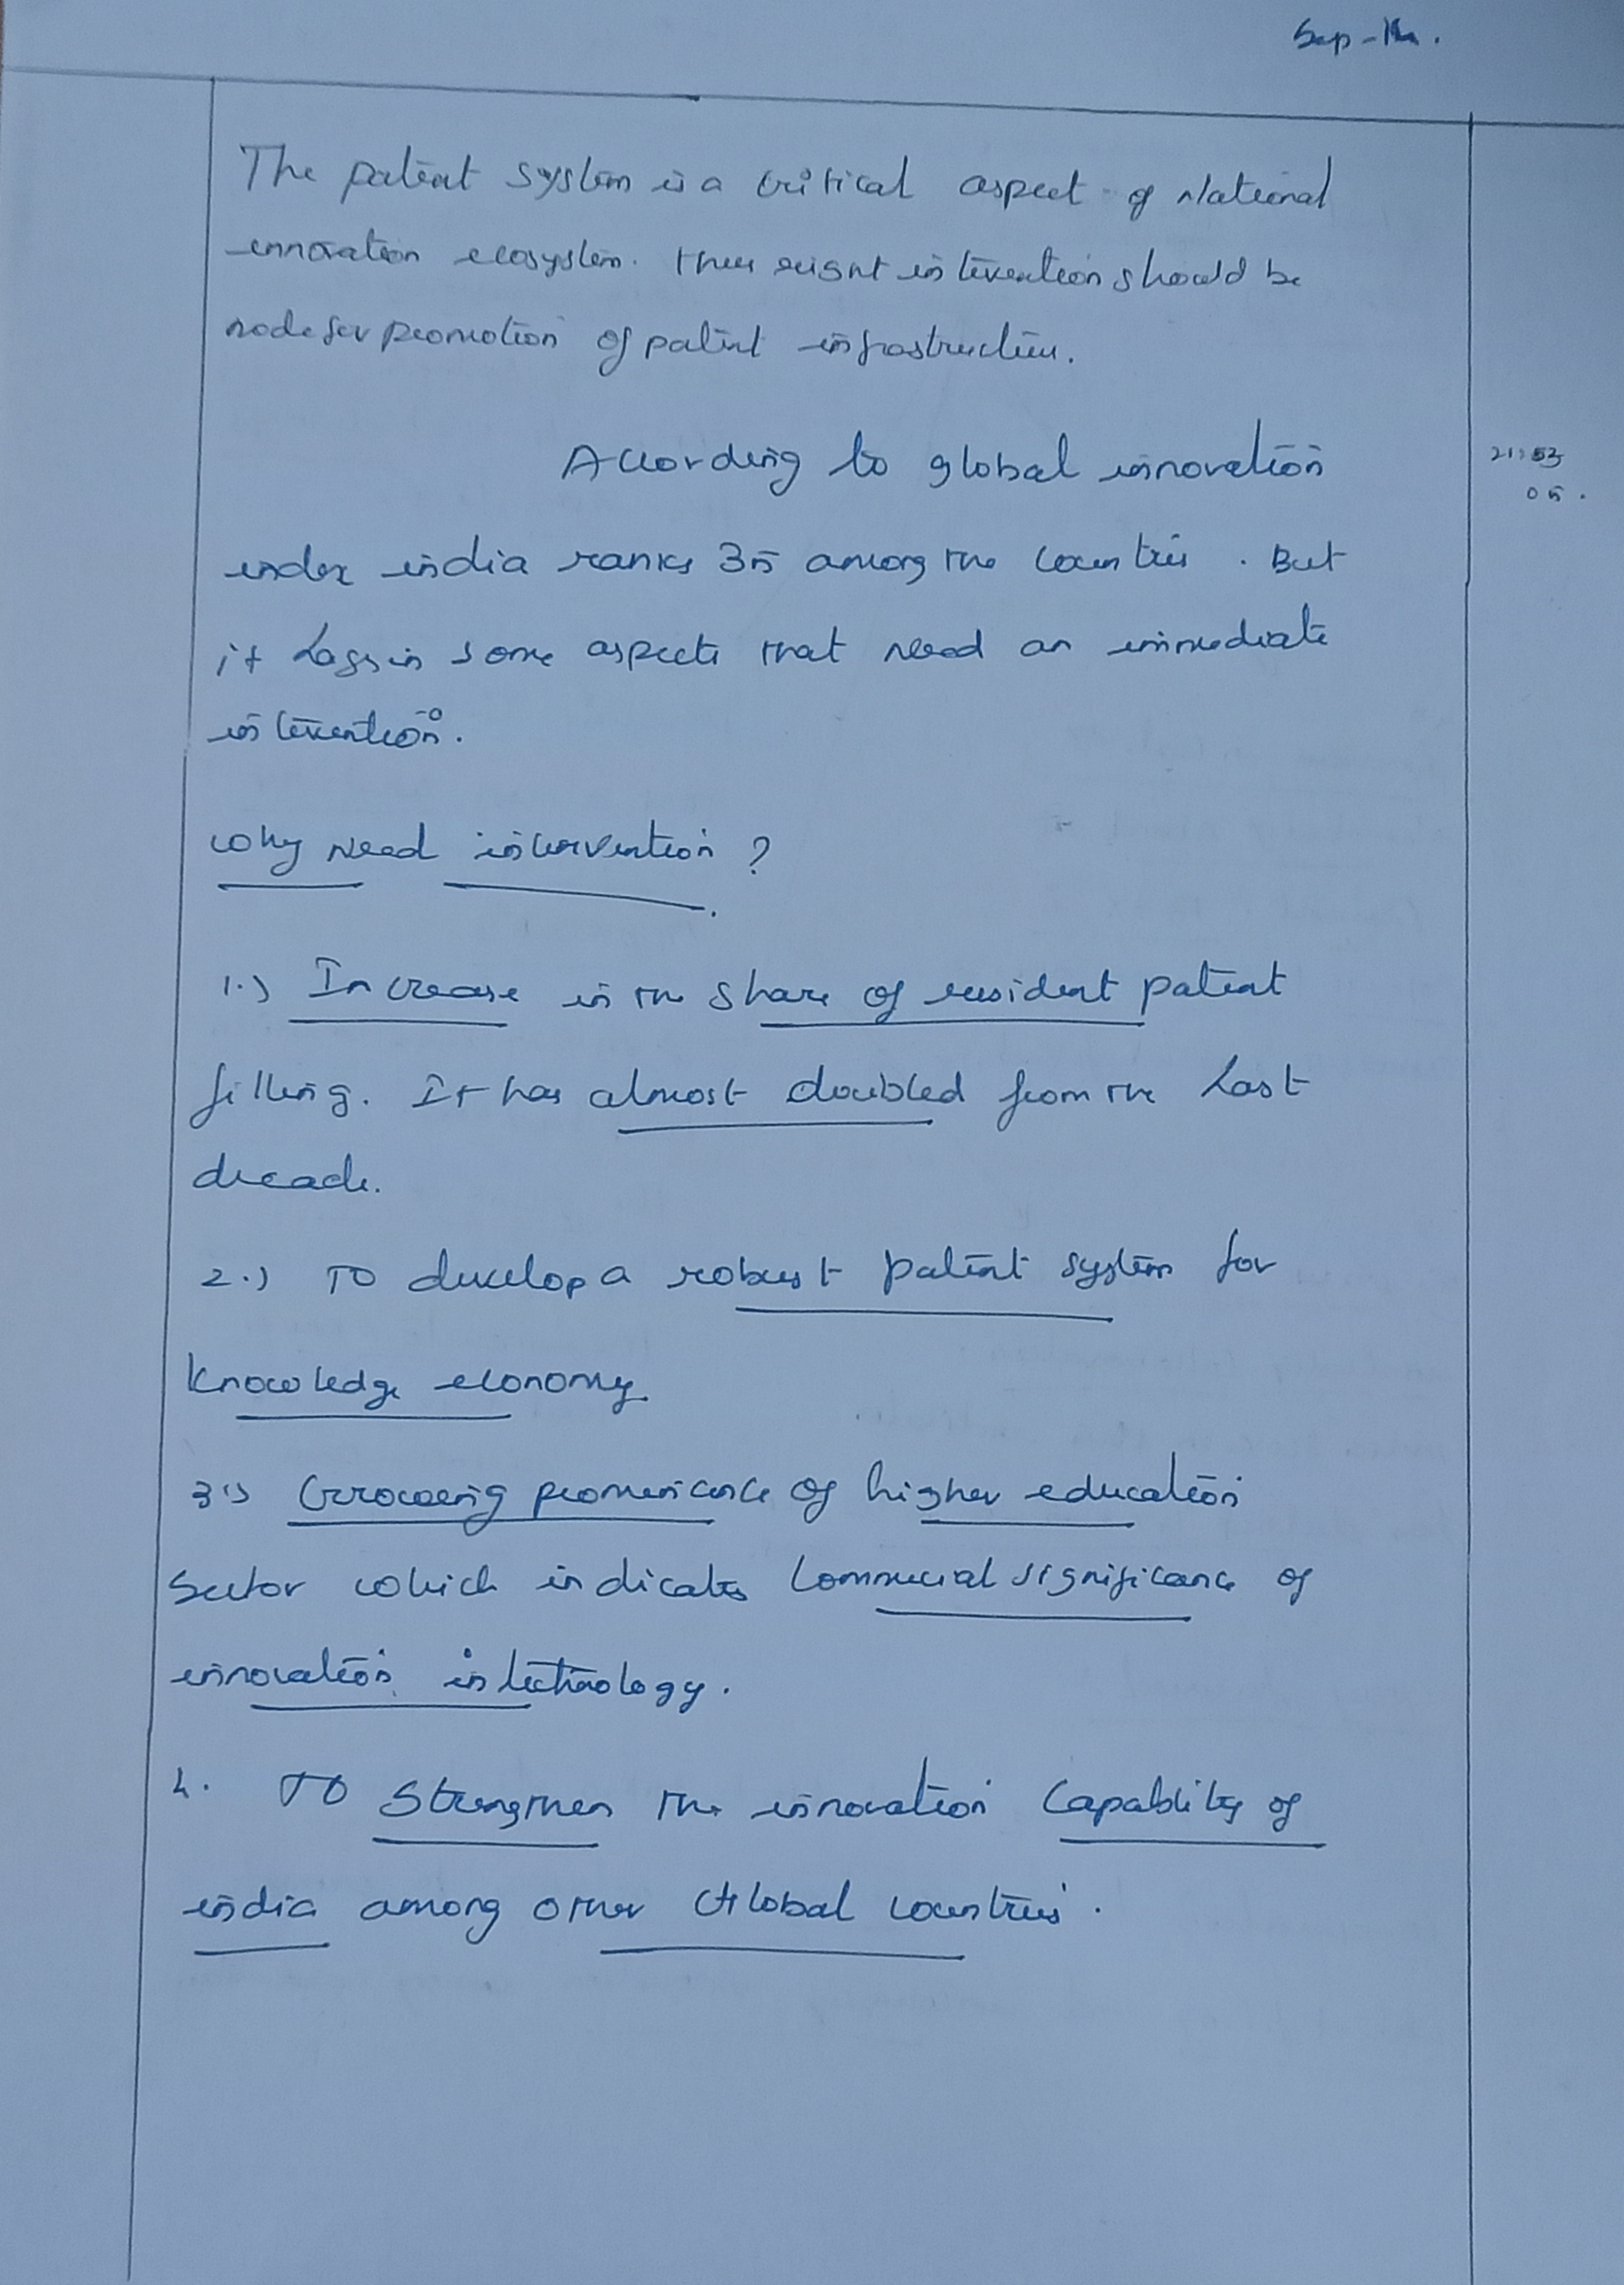 The patent system is a critical aspect of National
innovation ecosystem. thus right intervention should be
made for promotion of patent infrastructure.
According to global innovation
21:53
05.
index india ranks 35 among the countries. But
it lags in some aspects that need an immediate
intervention.
Why need intervention?
1.) Increase in the share of resident patent
filling. It has almost doubled from the last
decade.
2.) To develop a robust patent system for
knowledge economy
3.) Growing prominence of higher education
sector which indicates commercial significance of
innovation in technology.
4. To strengthen the innovation capablity of
india among other Global countries.